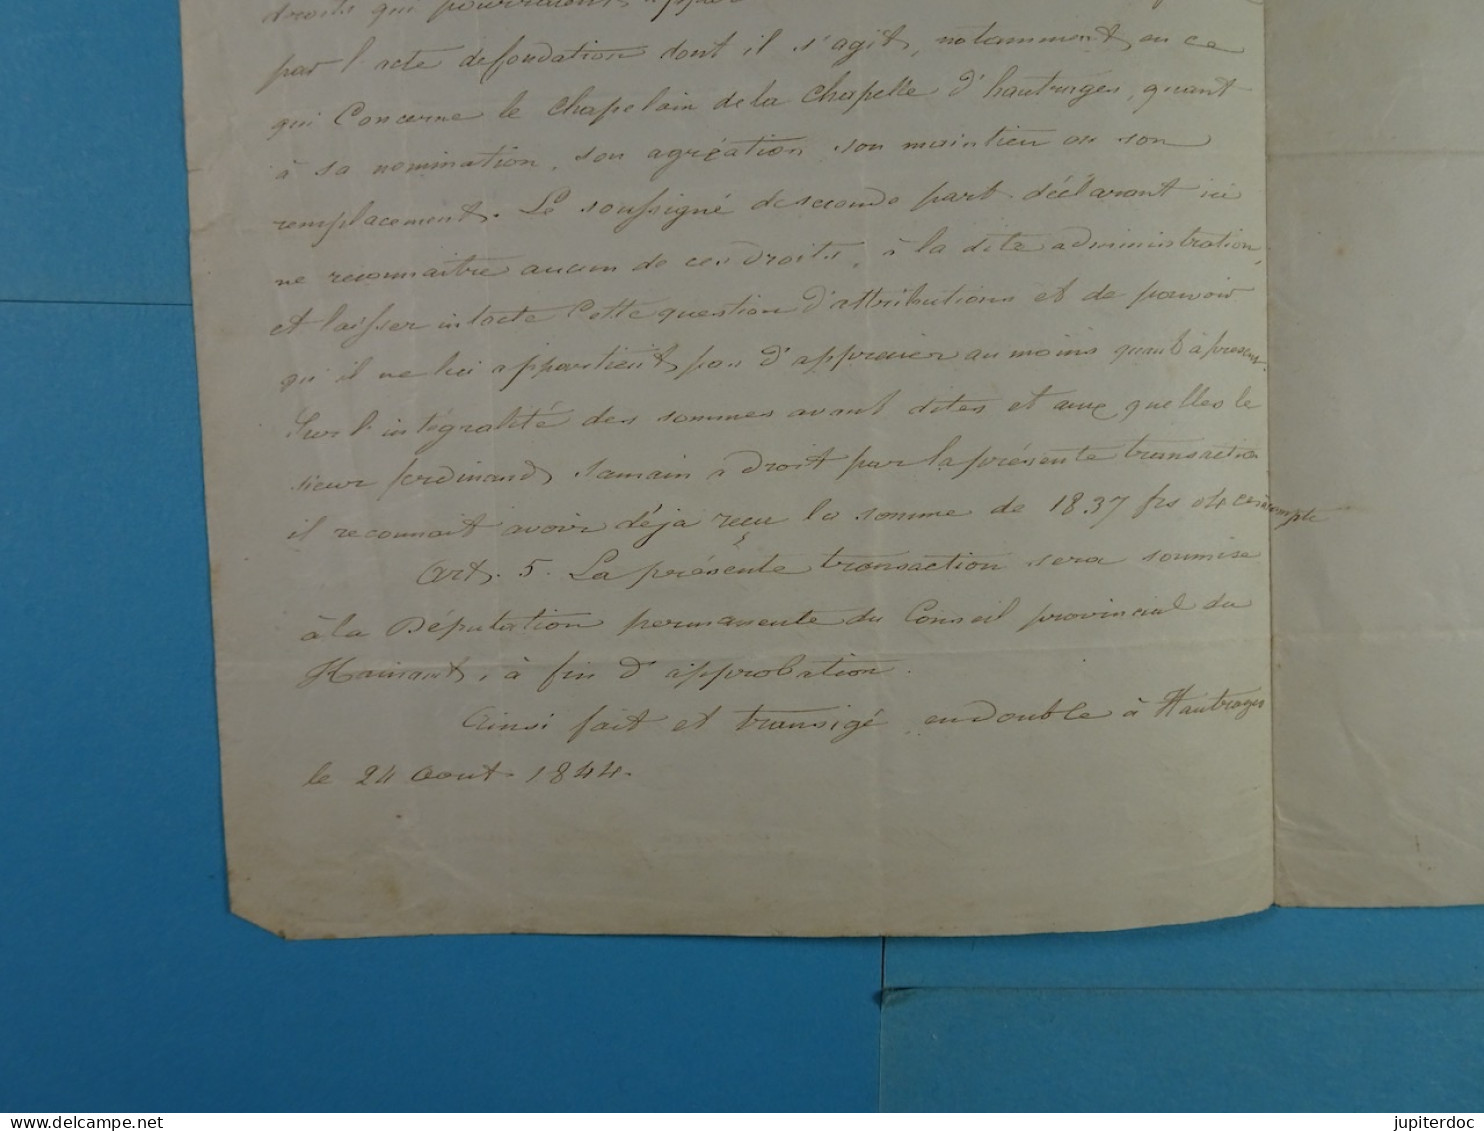 droits qui pourraient
par l'acte de fondation dont il s'agit, notamment en ce
qui Concerne le chapelain de la chapelle d'hautrages, quant
à sa nomination, son agréation, son maintien ou son
remplacement. Le soussigné de seconde part déclarant ici
ne reconnaitre aucun de ces droits, à la dite administration,
et laisser intacte Cette question d'attributions et de pouvoir
qu'il ne lui appartient pas d'apprécier au moins quant à présent.
Sur l'intégralité des sommes avant dites et aux quelles le
sieur ferdinand Samain a droit par la présente transaction
il reconnait avoir déja reçu la somme de 1837 frs 04 ces
Art. 5. La présente transaction sera soumise
à la Députation permanente du Conseil provincial du
Hainaut, à fin d'approbation.
Ainsi fait et transigé en double à Hautrages
le 24 Aout 1844.
jupiterdoc